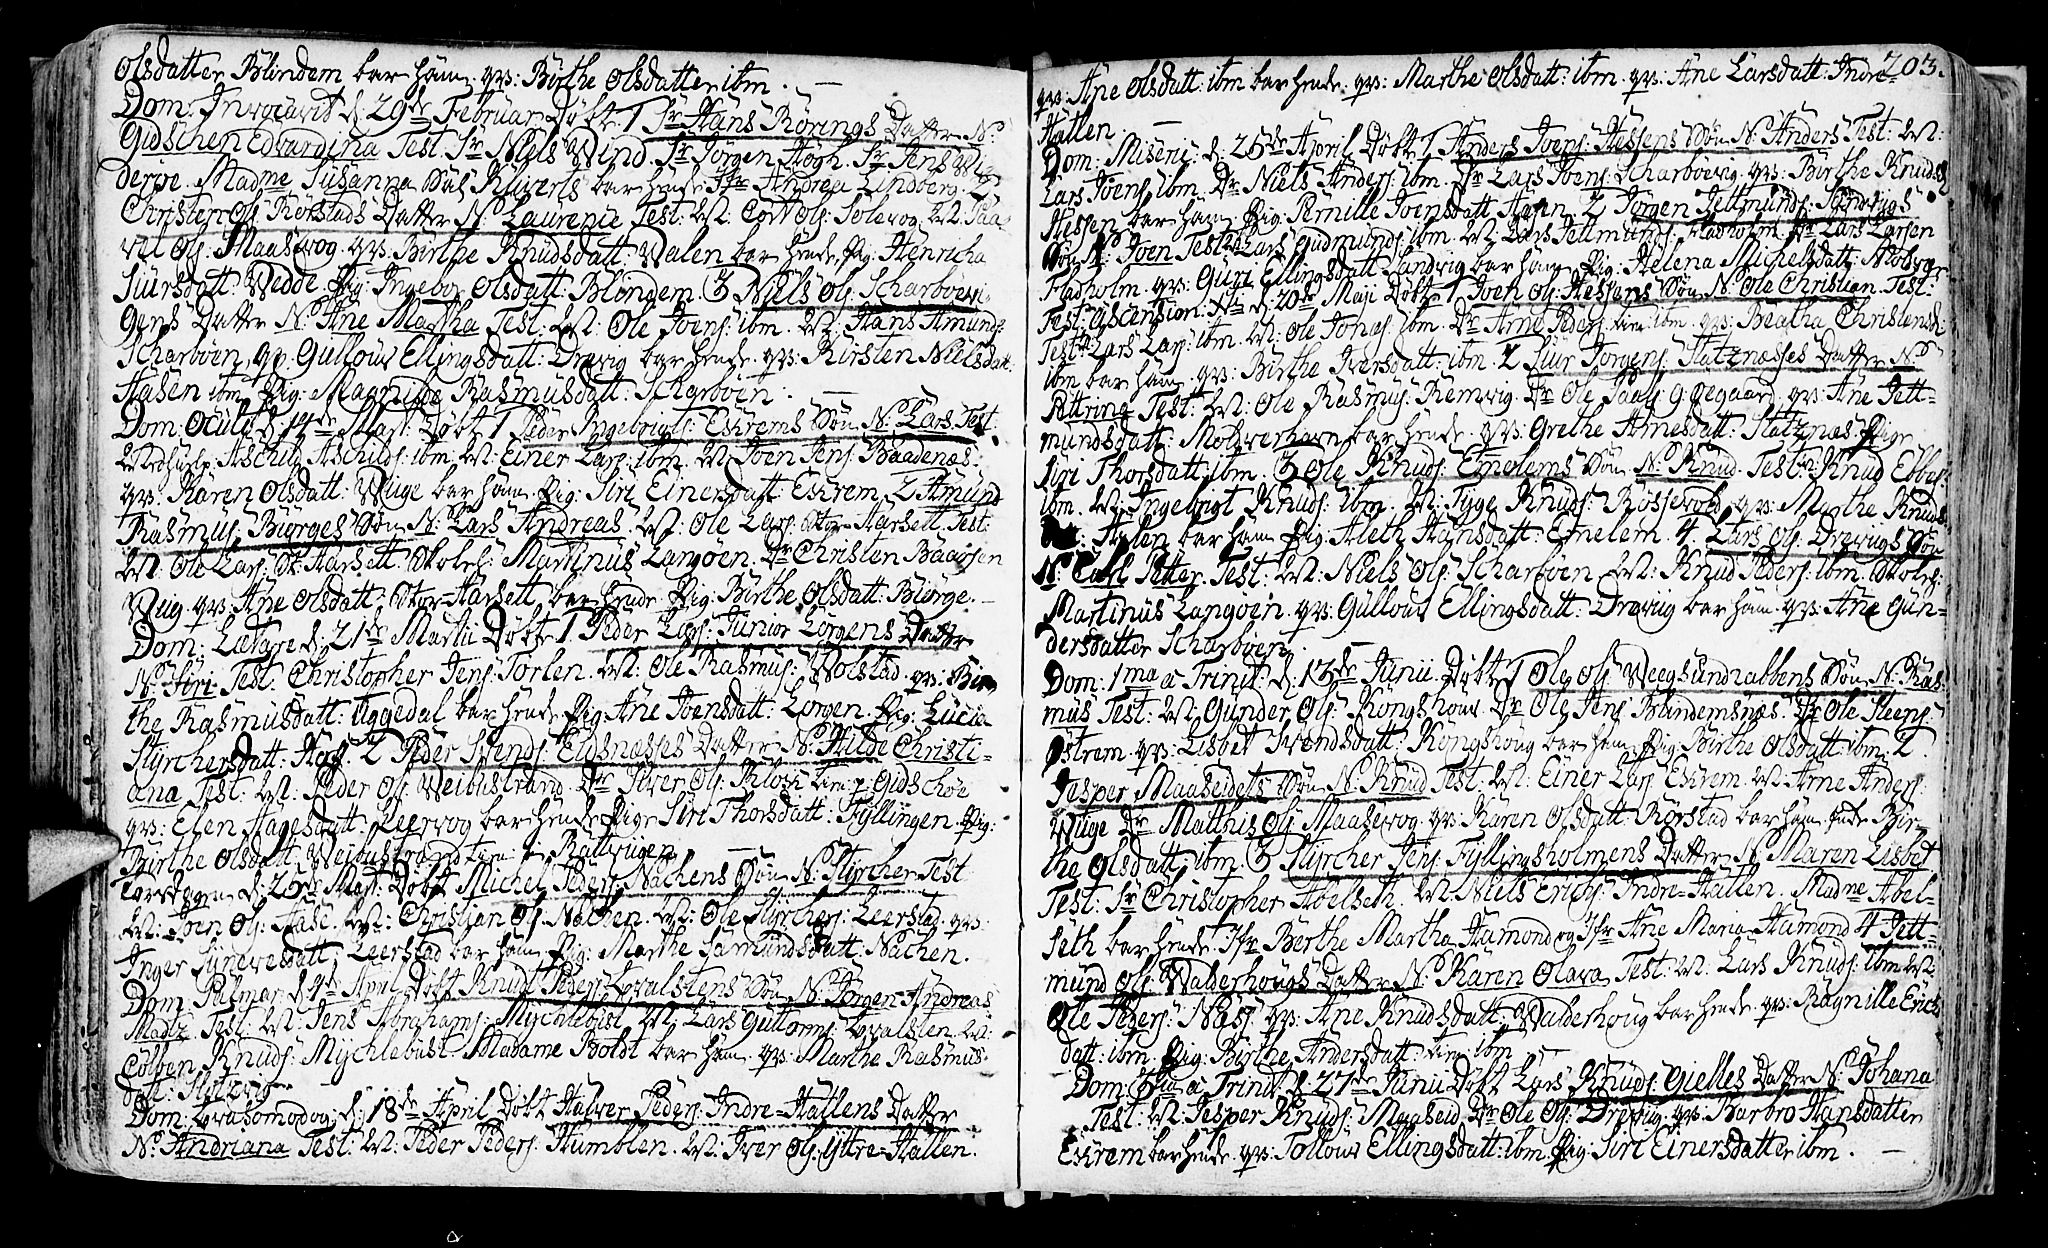 Olsdatter Blindem bar ham. qv: Birthe Olsdatter ibm. —
Dom: Invocavit d: 29de Februar Døbt 1 Sr Hans Rørings Datter N:
Gidschen Edvardina Test: Sr Niels Wind. Sr Jørgen Høgh. Sr Jens
derøe. Madme Susanna Sal Kuverts bar hende Jfr Andrea Lindberg. 2
Christen Ols: Rørstads Datter N: Laurenie Test: Ut: Cort Ols: Solevog Ut: Paa-
vel Ols: Maasevog. qv: Birthe Knudsdatt: Walen bar hende, Pig: Henricha
Siursdatt: Vedde. Pig: Ingebor Olsdatt: Blindem. 3 Niels Ols: Scharbøevi-
gens Datter N: Ane Martha Test: Ut: Ole Joens: ibm. Ut: Hans Amunds:
Scharbøen, qv: Gullour Ellingsdatt: Drevig bar hende. qv: Kirsten Nielsdatt:
Hasen ibm. Pig: Magnilde Rasmusdatt: Scharbøen. —
Dom: Oculi d: 14de Mart: Døbt 1 Peder Ingebrigts: Eskrems Søn N: Lars Test:
Aschild Aschilds: ibm. Ut: Einer Lars: ibm. Ut: Joen Jens: Baadenæs.
qv: Karen Olsdatt: Wiige bar ham. Pig: Siri Einersdatt: Eskrem. 2 Amund
Rasmus: Biørges Søn N: Lars Andreas. Ut: Ole Lars: Stor-Harsett Test:
Ut: Ole Lars: St: Harsett. Skoleh: Martinus Langøen. Dr Christen Baarsen
Wiig. qv: Ane Olsdatt: Stor-Harsett bar hende Pig: Birthe Olsdatt: Biørge. —
Dom: Lætare d: 21de Martii Døbt 1 Peder Lars: Junior Lorgens Datter
N: Siri Test: Christopher Jens: Torlen. Ut: Ole Rasmus: Wolstad. qv: Bir-
the Rasmusdatt: Eggedal bar hende Pig: Ane Joensdatt: Lorgen. Pig: Lucia
Styrchersdatt: 2 Peder Svends: Eidsnæsses Datter N: Hilde Christi-
ana Test: Ut: Peder Ols: Weibustrand. Dr Siver Ols: Gidschøe
qv: Elen Hagesdatt: Leervog bar hende Pige Siri Thorsdatt: Fyllingen. Pig:
Birthe Olsdatt: Weibustrand
Torsdagen d: 25de Mart: Døbt Michel Peders: Nachens Søn N: Styrcher Test:
Ut: Joen Ols: Aase. Ut: Christian Ols: Nachen. Ut: Ole Styrchers: Leerstad. qv:
Inger Synevesdatt: Leerstad bar ham. Pig: Marthe Samundsdatt: Nachen.
Dom: Palmar: d: April Døbt Knud Peders: Qvalstens Søn N: Jørgen Andreas
Madtz Test: Ut: Jens Abrahams: Mychlebust. Ut: Lars Guttorms: Qvalsten. Ut:
Colben Knuds: Mychlebust. Madame Boldt bar ham. qv: Marthe Rasmus-
datt: Slotzvig —
Dom: Qvasomodog: d: 18de April Døbt Halver Peders: Indre-Hallens Datter
N: Andriana Test: Ut: Peder Peders: Humblen. Ut: Iver Ols: Yttre-Hallen.
203.
qv: Ane Olsdatt: ibm bar hende. qv: Marthe Olsdatt: ibm. qv: Ane Larsdatt: Indre
Hallen. —
Dom: Miseri: d: 25de April Døbt 1 Anders Joens: Hessens Søn N: Anders Test: Ut:
Lars Joens: ibm. Dr Niels Anders: ibm. Dr Lars Joens: Scharbøevig. qv: Birthe Knudsd:
Hessen bar ham. Pig: Pernille Joensdatt: Hasen. 2 Jørgen Tettmunds: Sandvigs
Søn N: Joen Test: Lars Gudmunds: ibm. Ut: Lars Tettmunds: Fladholm. Dr Lars Larsen
Fladholm. qv: Guri Ellingsdatt: Sandvig bar ham. Pig: Helena Michelsdatt:
Fest: Ascension: Xti d: 20de Maji Døbt 1 Joen Ols: Hessens Søn N: Ole Christian. Test:
Test: Lars Lars: ibm. Ut: Ole Jonas: ibm. Dr Arne Peders: ibm. qv: Beatha Christensd:
ibm bar ham. qv: Birthe Iversdatt: ibm. 2 Siur Jørgens: Slatznæsses Datter N:
Pettrine Test: Ut: Ole Rasmus: Remvig. Dr Ole Paals: Ødegaard. qv: Ane Tett-
mundsdatt: Molverhavn bar hende. qv: Grethe Arnesdatt: Slatznæs Pige
Siri Thorsdatt: ibm. 3 Ole Knuds: Emelems Søn N: Knud. Test: Knud Ebbes:
ibm. Ut: Ingebrigt Knuds: ibm. Ut: Tyge Knuds: Røssevold. qv: Marthe Knuds-
datt: Hylen bar ham Pig: Aleth Hansdatt: Emelem. 4 Lars Ols: Drevigs Søn
N: Carl Petter Test: Ut: Niels Ols: Scharbøen. Ut: Knud Peders: ibm. Skoleh:
Martinus Langøen. qv: Gullour Ellingsdatt: Drevig bar ham. qv: Ane Gun-
dersdatter Scharbøen. —
Dom: 1ma a Trinit: d: 13de Junii Døbt 1 Ole Ols: Veegsundnabbens Søn N: Ras-
mus Test: Ut: Gunder Ols: Kongshoug Dr Ole Jens: Blindemsnæs. Dr Ole Steens:
Østrem. qv: Lisbet Svendsdatt: Kongshoug bar ham Pig: Birthe Olsdatt: ibm. 2
Jesper Maaseidets Søn N: Knud Test: Ut: Einer Lars: Eskrem. Ut: Arne Anders:
Wiige Dr Matthis Ols: Maasevog. qv: Karen Olsdatt: Rørstad bar ham. Ende Bir-
the Olsdatt: ibm. 3 Styrcher Jens: Fyllingsholmens Datter N: Maren Lisbet
Test: Sr Christopher Abelseth. Ut: Niels Erichs: Indre-Hallen. Madme Abel-
seth bar hende. Jfr Birthe Martha Aumond og Jfr Ane Maria Aumond 4 Tett-
mund Ols: Walderhougs Datter N: Karen Olava Test: Ut: Lars Knuds: ibm. Ut:
Ole Peders: Næss. qv: Ane Knudsdatt: Walderhoug bar hende. qv: Ragnille Erichs
datt: ibm. Pig: Birthe Andersdatt: ibm.
Dom: 3tia a Trinit: d: 27de Junii Døbt Lars Knuds: Gielles Datter N: Johana
Test: Ut: Jesper Knuds: Maaseid. Dr Ole Ols: Drevig. qv: Barbro Hansdatter
Eskrem bar hende. qv: Tollour Ellingsdatt: ibm. Pig: Siri Einersdatter ibm. —